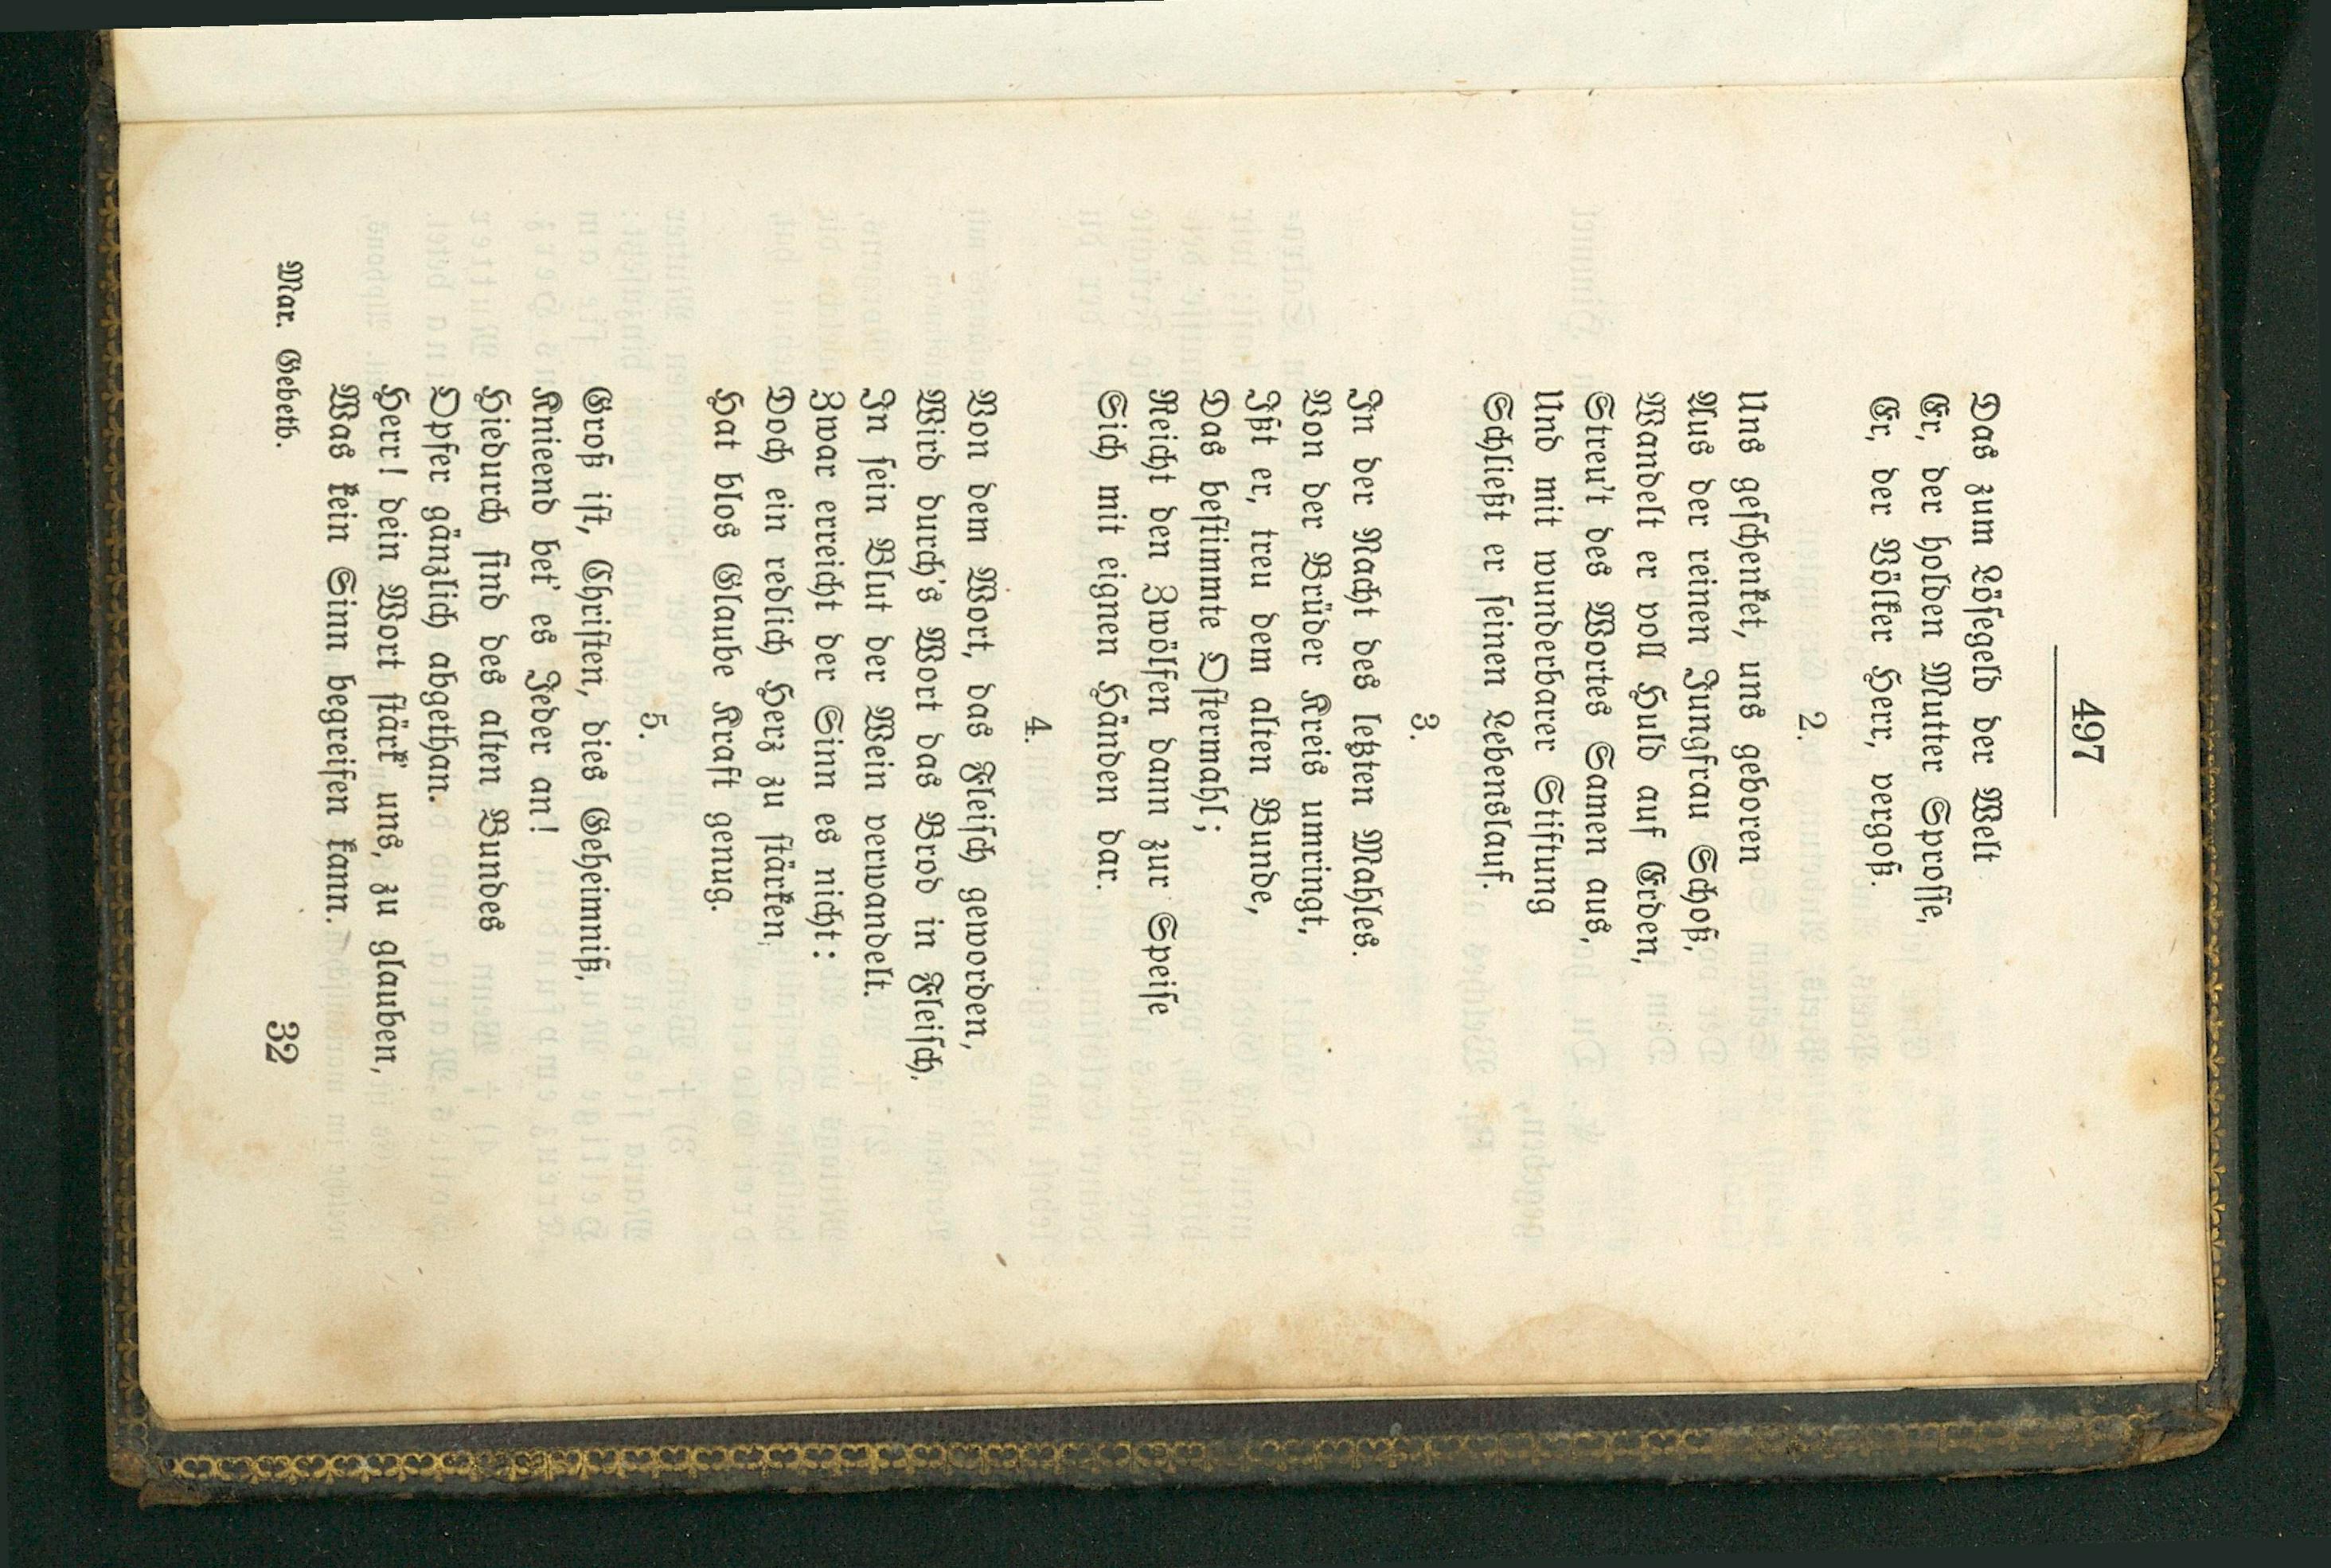 497
Das zum Löſegeld der Welt
Er, der holden Mutter Sproſſe,
Er, der Völker Herr, vergoß.
2.
Uns geſchenket, uns geboren
Aus der reinen Jungfrau Schoß,
Wandelt er voll Huld auf Erden,
Streu't des Wortes Samen aus,
Und mit wunderbarer Stiftung
Schließt er ſeinen Lebenslauf.
3.
In der Nacht des letzten Mahles.
Von der Brüder Kreis umringt,
Ißt er, treu dem alten Bunde,
Das beſtimmte Oſtermahl;
Reicht den Zwölfen dann zur Speiſe
Sich mit eignen Händen dar.
4.
Von dem Wort, das Fleiſch geworden,
Wird durch's Wort das Brod in Fleiſch,
In ſein Blut der Wein verwandelt.
Zwar erreicht der Sinn es nicht:
Doch ein redlich Herz zu ſtärken,
Hat blos Glaube Kraft genug.
5.
Groß iſt, Chriſten, dies Geheimniß,
Knieend bet' es Jeder an!
Hiedurch ſind des alten Bundes
Opfer gänzlich abgethan.
Herr! dein Wort ſtärk' uns, zu glauben,
Was kein Sinn begreifen kann.
Mar. Gebetb. 32